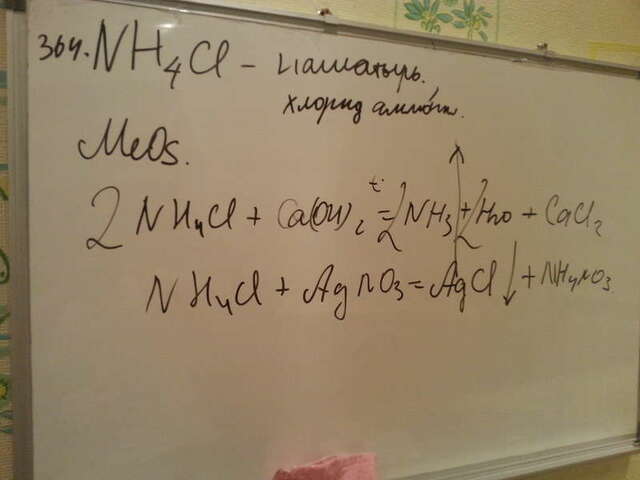 364. NH₄Cl – нашатырь,
хлорид аммон.
MeOs.
2NH₄Cl + Ca(OH)₂ =ᵗ 2NH₃↑ + 2H₂O + CaCl₂
NH₄Cl + AgNO₃ = AgCl↓ + NH₄NO₃